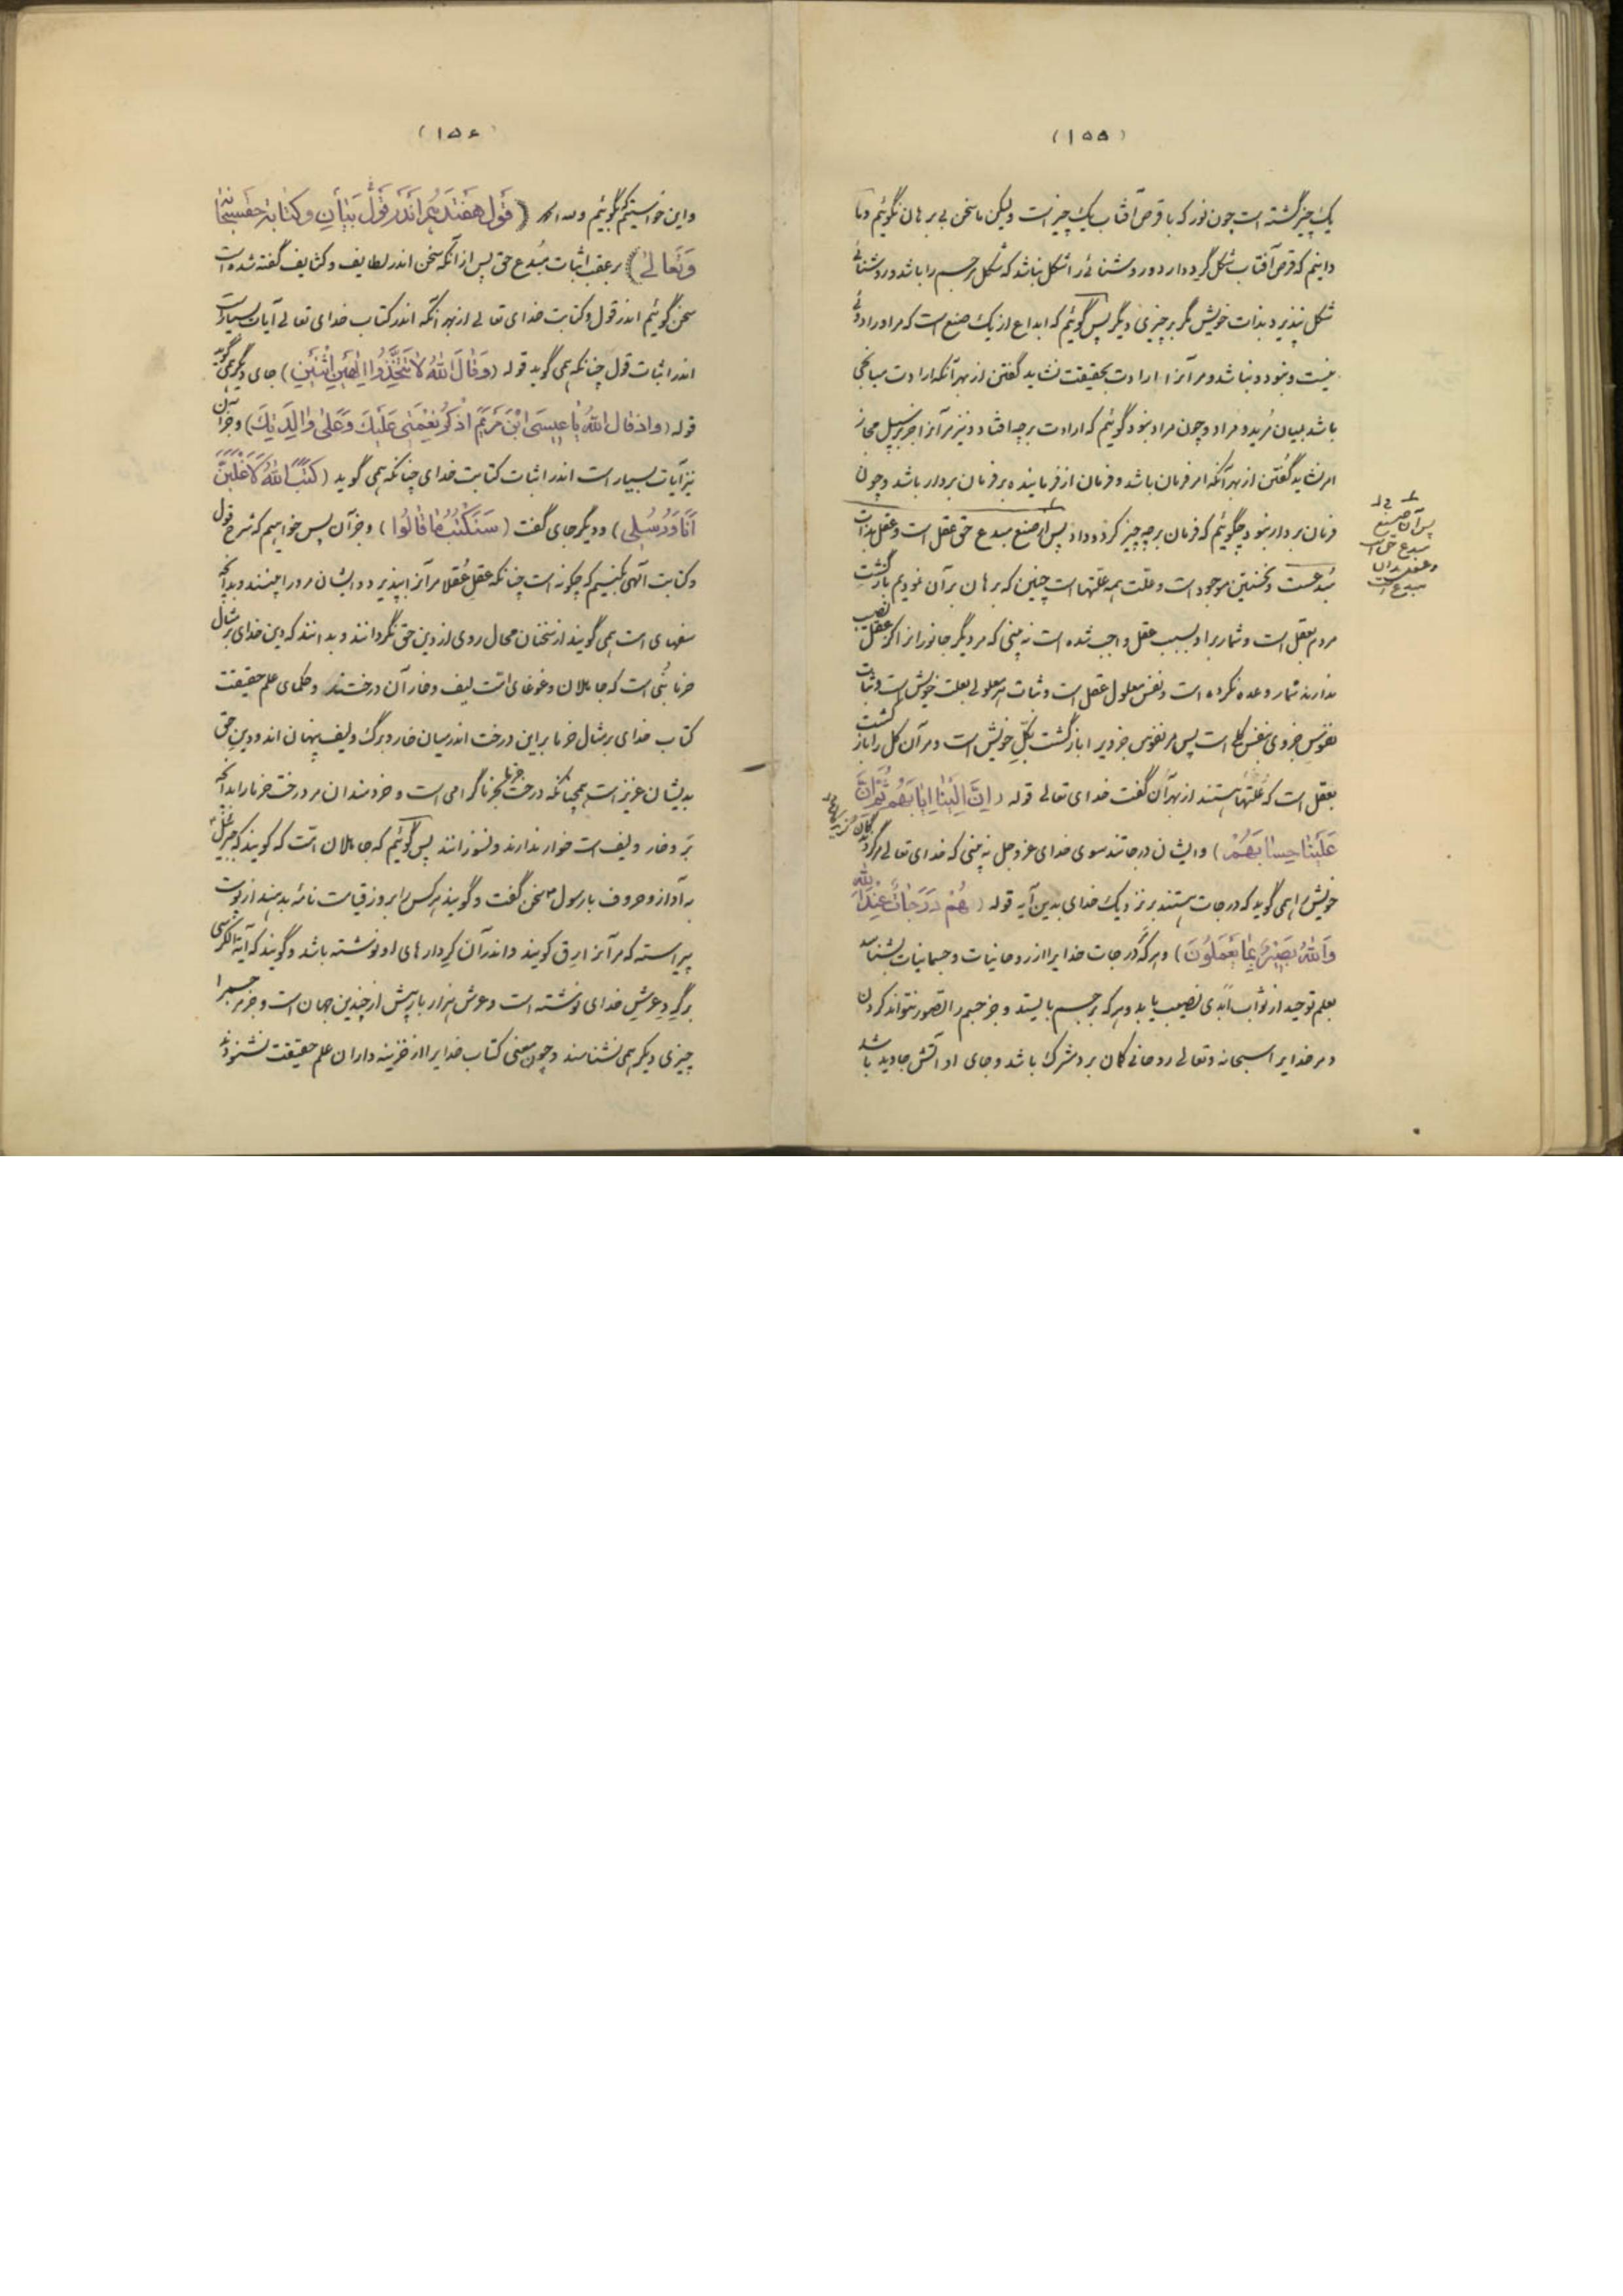 (۱۵۵)
یک چیز گشته است چون نور که با قرص آفتاب یک چیز است ولیکن ما سخن بی برهان نگوئیم و ما
دانیم که قرص آفتاب شکل گرد دارد و روشنائی را شکل نباشد که شکل مر جسم را باشد و روشنائی
شکل نپذیرد بذات خویش مگر بر چیزی دیگر پس گوئیم که ابداع از یک صنع است که مر او را دوئی
نیست و نبود و نباشد و مر آنرا ارادت بحقیقت نشاید گفتن از بهر آنکه ارادت میانجی
باشد میان مُرید و مراد و چون مراد نبود گوئیم که ارادت بر چه افتاد و نیز مر آنرا جز بر سبیل مجاز
امر نشاید گفتن از بهر آنکه امر فرمان باشد و فرمان از فرماینده بر فرمان بردار باشد و چون
فرمان بردار نبود چگوئیم که فرمان بر چه چیز کرد و داد پس از صنع مبدع حق عقل است و عقل بذات
مُبدعست و نخستین موجود است و علت همه علّتهاست چنین که برهان بر آن نمودیم بازگشت
مردم بعقل است و شمار بر او بسبب عقل واجب شده است نه بینی که مر دیگر جانور از اکز عقل نصیب
ندارند شمار وعده نکرده است و نفس معلول عقل است و ثبات هر معلولی بعلت خویش است و ثبات
نفوس جزوی بنفس کلی است پس مر نفوس جزویرا بازگشت بکلّ خویش است و مر آن کل را بازگشت
بعقل است که علّتهاستند از بهر آن گفت خدای تعالی قوله (اِنَّ اِلَیْنٰا اِیٰابَهُم ثُمَّ اِنَّ
عَلَیْنٰا حِسٰابَهُمْ) و ایشان درجاتند سوی خدای عز و جل نه بینی که خدای تعالی مر گروه
خویش را همی گوید که درجات هستند بر نزدیک خدای بدین آیه قوله (هُمْ دَرَجٰاتٌ عِنْدَ اللّٰهِ
وَاللّٰهُ بَصِیْرٌ بِمٰا یَعْمَلُونَ) و هر که درجات خدایرا از روحانیات و جسمانیات بشناسد
بعلم توحید از ثواب ابدی نصیب یابد و هر که بر جسم بایستد و جز جسم را تصور نتواند کردن
و مر خدایرا سبحانه و تعالی روحانی گمان برد مشرک باشد و جای او آتش جاوید باشد
پس آن صنع
مبدع حق است
و عقل بذات
مبدع است
(۱۵۶)
و این خواستیم که بگوئیم (قَول هَفتَدَهُم اَندَر قَولُ بَیٰانِ و کِتٰابَة حق سبحانه
وَتَعالیٰ) بر عقب اثبات مُبدع حق پس از آنکه سخن اندر لطایف و کثایف گفته شده است
سخن گوئیم اندر قول و کتابت خدای تعالی از بهر آنکه اندر کتاب خدای تعالی آیات بسیار است
اندر اثبات قول چنانکه همی گوید قوله (وَقٰالَ اللّٰهُ لاٰ تَتَّخِذُوا اِلٰهَیْنِ اثْنَیْنِ) جای دیگر همی گوید
قوله (و اذ قال اللّٰهُ یٰا عیسَی ابْنَ مَرْیَمَ اذْکُرْ نِعْمَتی عَلَیْكَ وَعَلیٰ وٰالِدَتِكَ) و جز آن
نیز آیات بسیار است اندر اثبات کتابت خدای چنانکه همی گوید (کَتَبَ اللّٰهُ لَاَغْلِبَنَّ
اَنَا وَرُسُلی) و دیگر جای گفت (سَنَکْتُبُ مٰا قٰالُوا) و جز آن پس خواهیم که شرح قول
و کتابت الهی بکنیم که چگونه است چنانکه عقل عُقلا مر آنرا بپذیرد و ایشان مر ورا ببینند و بدانچه
سفهای امت همی گویند از سخنان محال روی از دین حق نگردانند و بدانند که دین خدای بر مثال
خرما بُنی است که جاهلان و غوغای امت لیف و خار آن درختند و حکمای علم حقیقت
کتاب خدای بر مثال خرما بر این درخت اندر میان خار و برگ و لیف پنهان اند و دین حق
بدیشان عزیز است همچنانکه درخت خرما بخرما گرامی است و خردمندان مر درخت خرما را بدانچه
پر و خار و لیف است خوار ندارند و نسوزانند پس گوئیم که جاهلان امّت که گویند که جبرئیل
به آواز و حروف با رسول سخن گفت و گویند هر کس را بروز قیامت نامۀ بدهند از پوست
پیراسته که مر آنرا رِق گویند و اندر آن کردارهای او نوشته باشد و گویند که آیة الکرسی
بر گِردِ عرش خدای نوشته است و عرش هزار بار بیش از چندین جهان است و جز مر جسم را
چیزی دیگر همی نشناسند و چون معنی کتاب خدایرا از خزینه داران علم حقیقت نشنوده‌اند